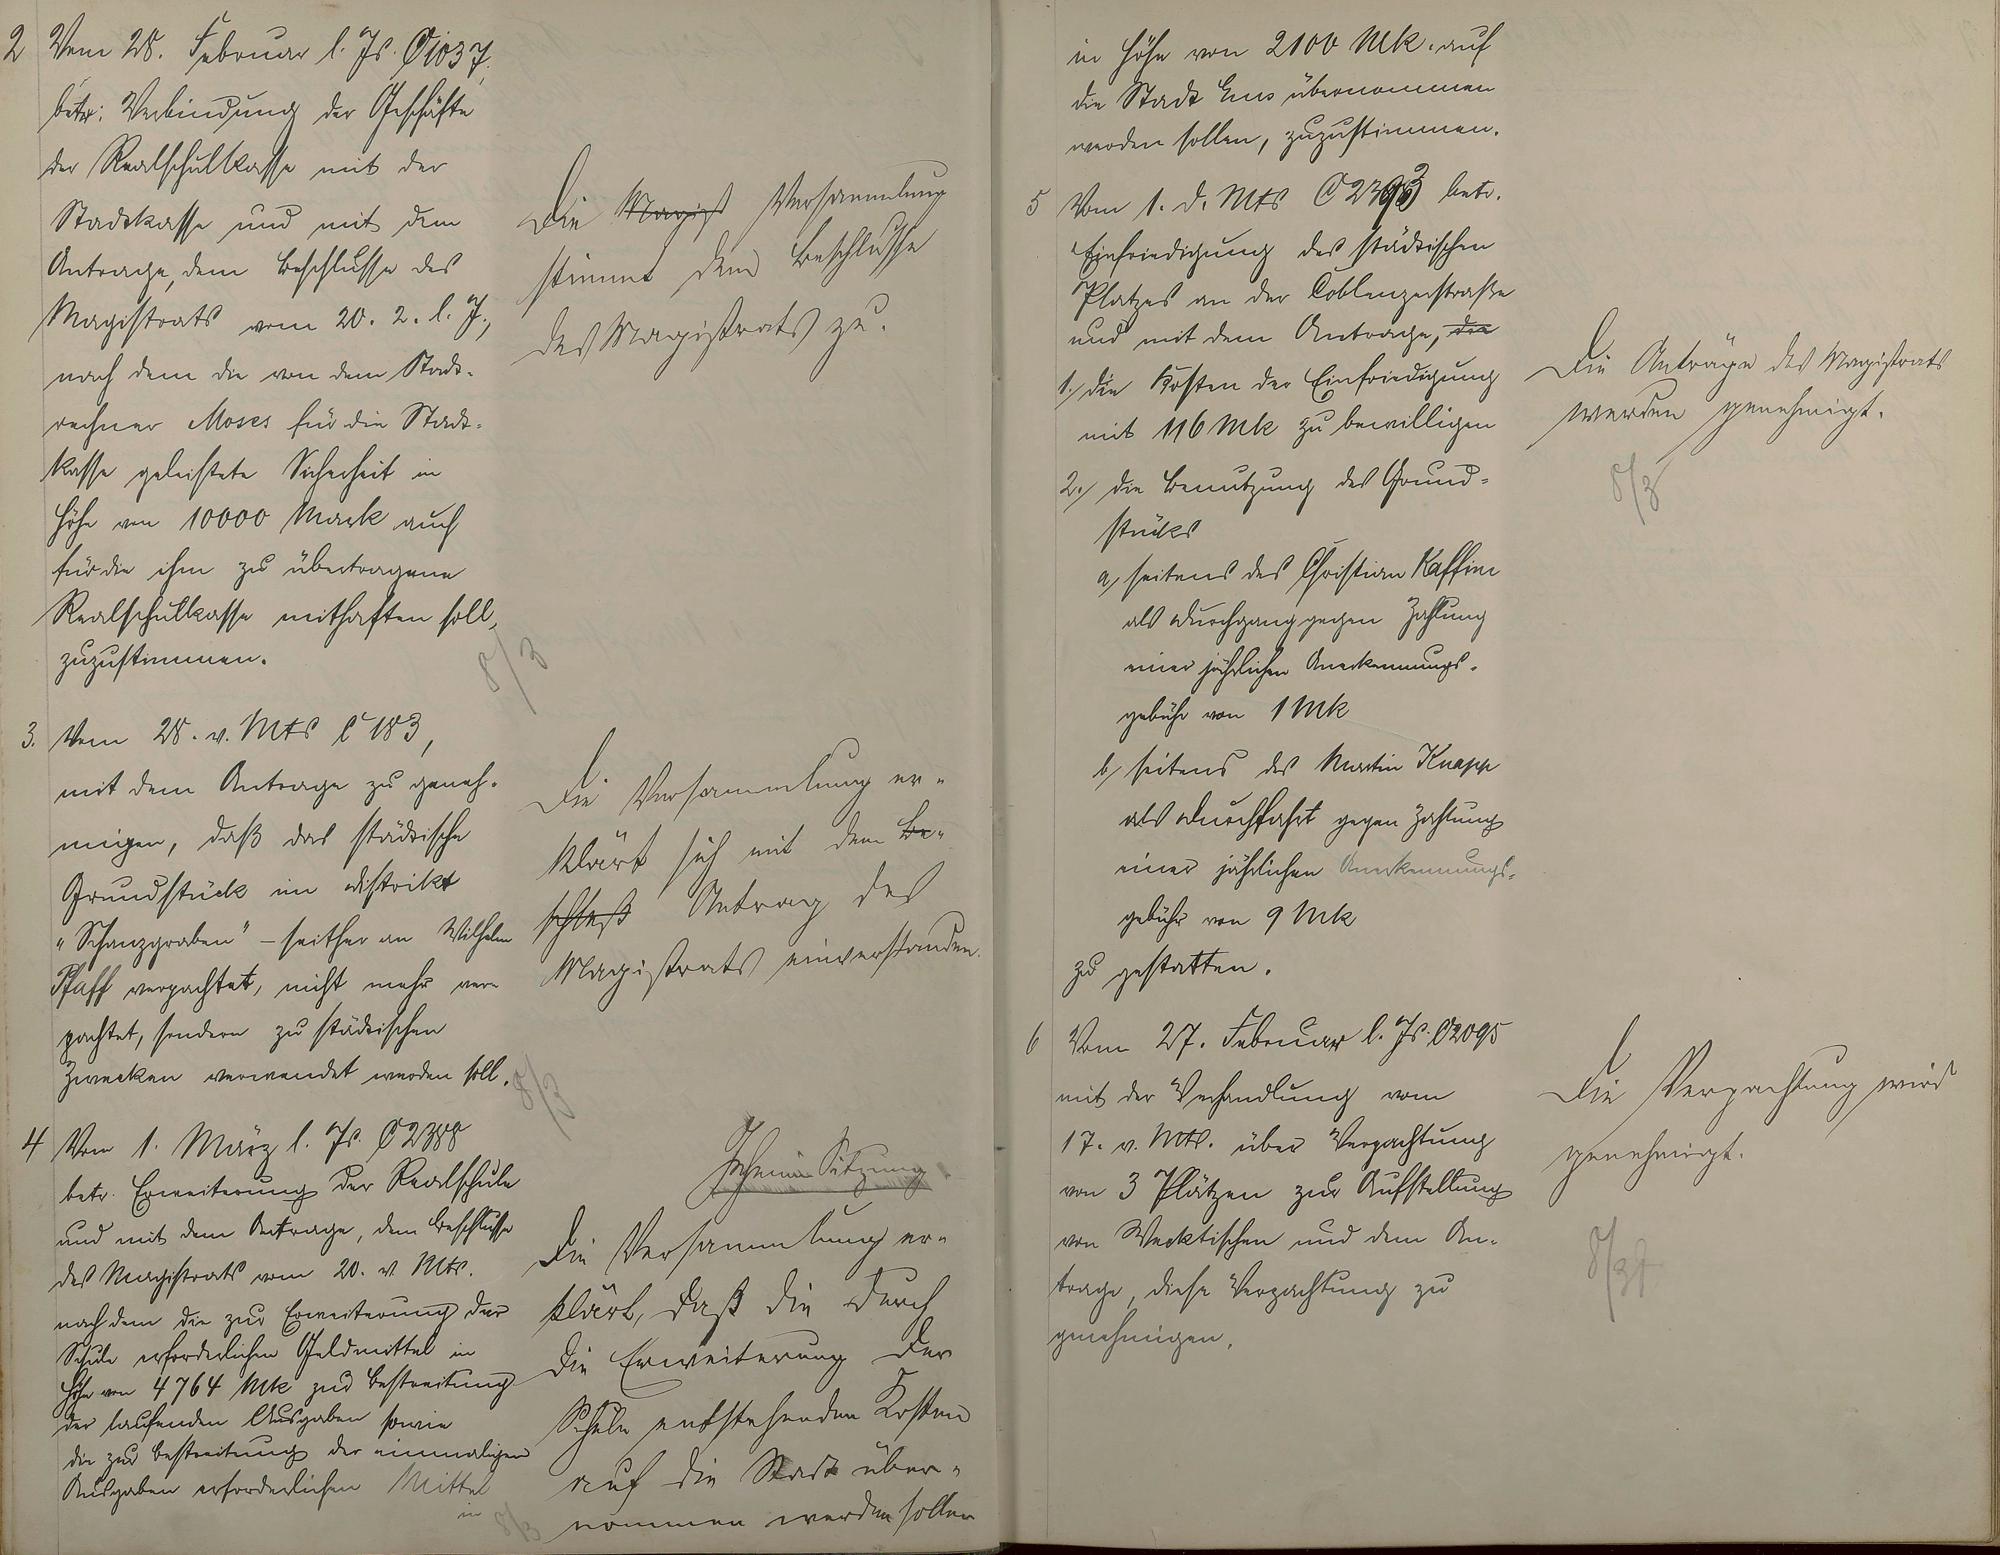 2 Vom 28. Februar l. Js. C 1037,
betr: Verbindung der Geschäfte
der Realschulkasse mit der
Stadtkasse und mit dem
Antrage, dem Beschlusse des
Magistrats vom 20. 2. l. J.,
nach dem die von dem Stadt-
rechner Moses für die Stadt-
kasse geleistete Sicherheit in
Höhe von 10000 Mark auch
für die ihm zu übertragene
Realschulkasse mithaften soll,
zuzustimmen.
8/3
Die Magist Versammlung
stimmt dem Beschlusse
des Magistrats zu.
3. Vom 28. v. Mts C 183,
mit dem Antrage zu geneh-
migen, daß das städtische
Grundstück im Distrikt
"Schanzgraben" – seither an Wilhelm
Pfaff verpachtet, nicht mehr ver-
pachtet, sondern zu städtischen
Zwecken verwendet werden soll.
8/3
Die Versammlung er-
klärt sich mit dem Be-
schluß Antrag des
Magistrats einverstanden.
4 Vom 1. März l. Js. C 2388
betr. Erweiterung der Realschule
und mit dem Antrage, dem Beschlusse
des Magistrats vom 20. v. Mts.
nach dem die zur Erweiterung der
Schule erforderlichen Geldmittel in
Höhe von 4764 Mk zur Bestreitung
der laufenden Ausgaben sowie
die zur Bestreitung der einmaligen
Ausgaben erforderlichen Mittel
in
8/3
Geheime Sitzung
Die Versammlung er-
klärt, daß die durch
die Erweiterung der
Schule entstehenden Kosten
auf die Stadt über-
nommen werden sollen
in Höhe von 2100 Mk. auf
die Stadt Ems übernommen
werden sollen, zuzustimmen.
5 Vom 1. d. Mts betr.
Einfriedigung des städtischen
Platzes an der Coblenzerstraße
und mit dem Antrage, die
1./ die Kosten der Einfriedigung
mit 116 Mk zu bewilligen
2./ die Benutzung des Grund-
stücks
a/ seitens des Christian Kaffine
als Durchgang gegen Zahlung
einer jährlichen Anerkennungs-
gebühr von 1 Mk
b/ seitens des Martin Knapp
als Durchfahrt gegen Zahlung
einer jährlichen Anerkennungs-
gebühr von 9 Mk
zu gestatten.
Die Anträge des Magistrats
werden genehmigt.
8/3
6 Vom 27. Februar l. Js. C 2095
mit der Verhandlung vom
17. v. Mts. über Verpachtung
von 3 Plätzen zur Aufstellung
von Wecktischen und dem An-
trage, diese Verpachtung zu
genehmigen.
Die Verpachtung wird
genehmigt.
8/3